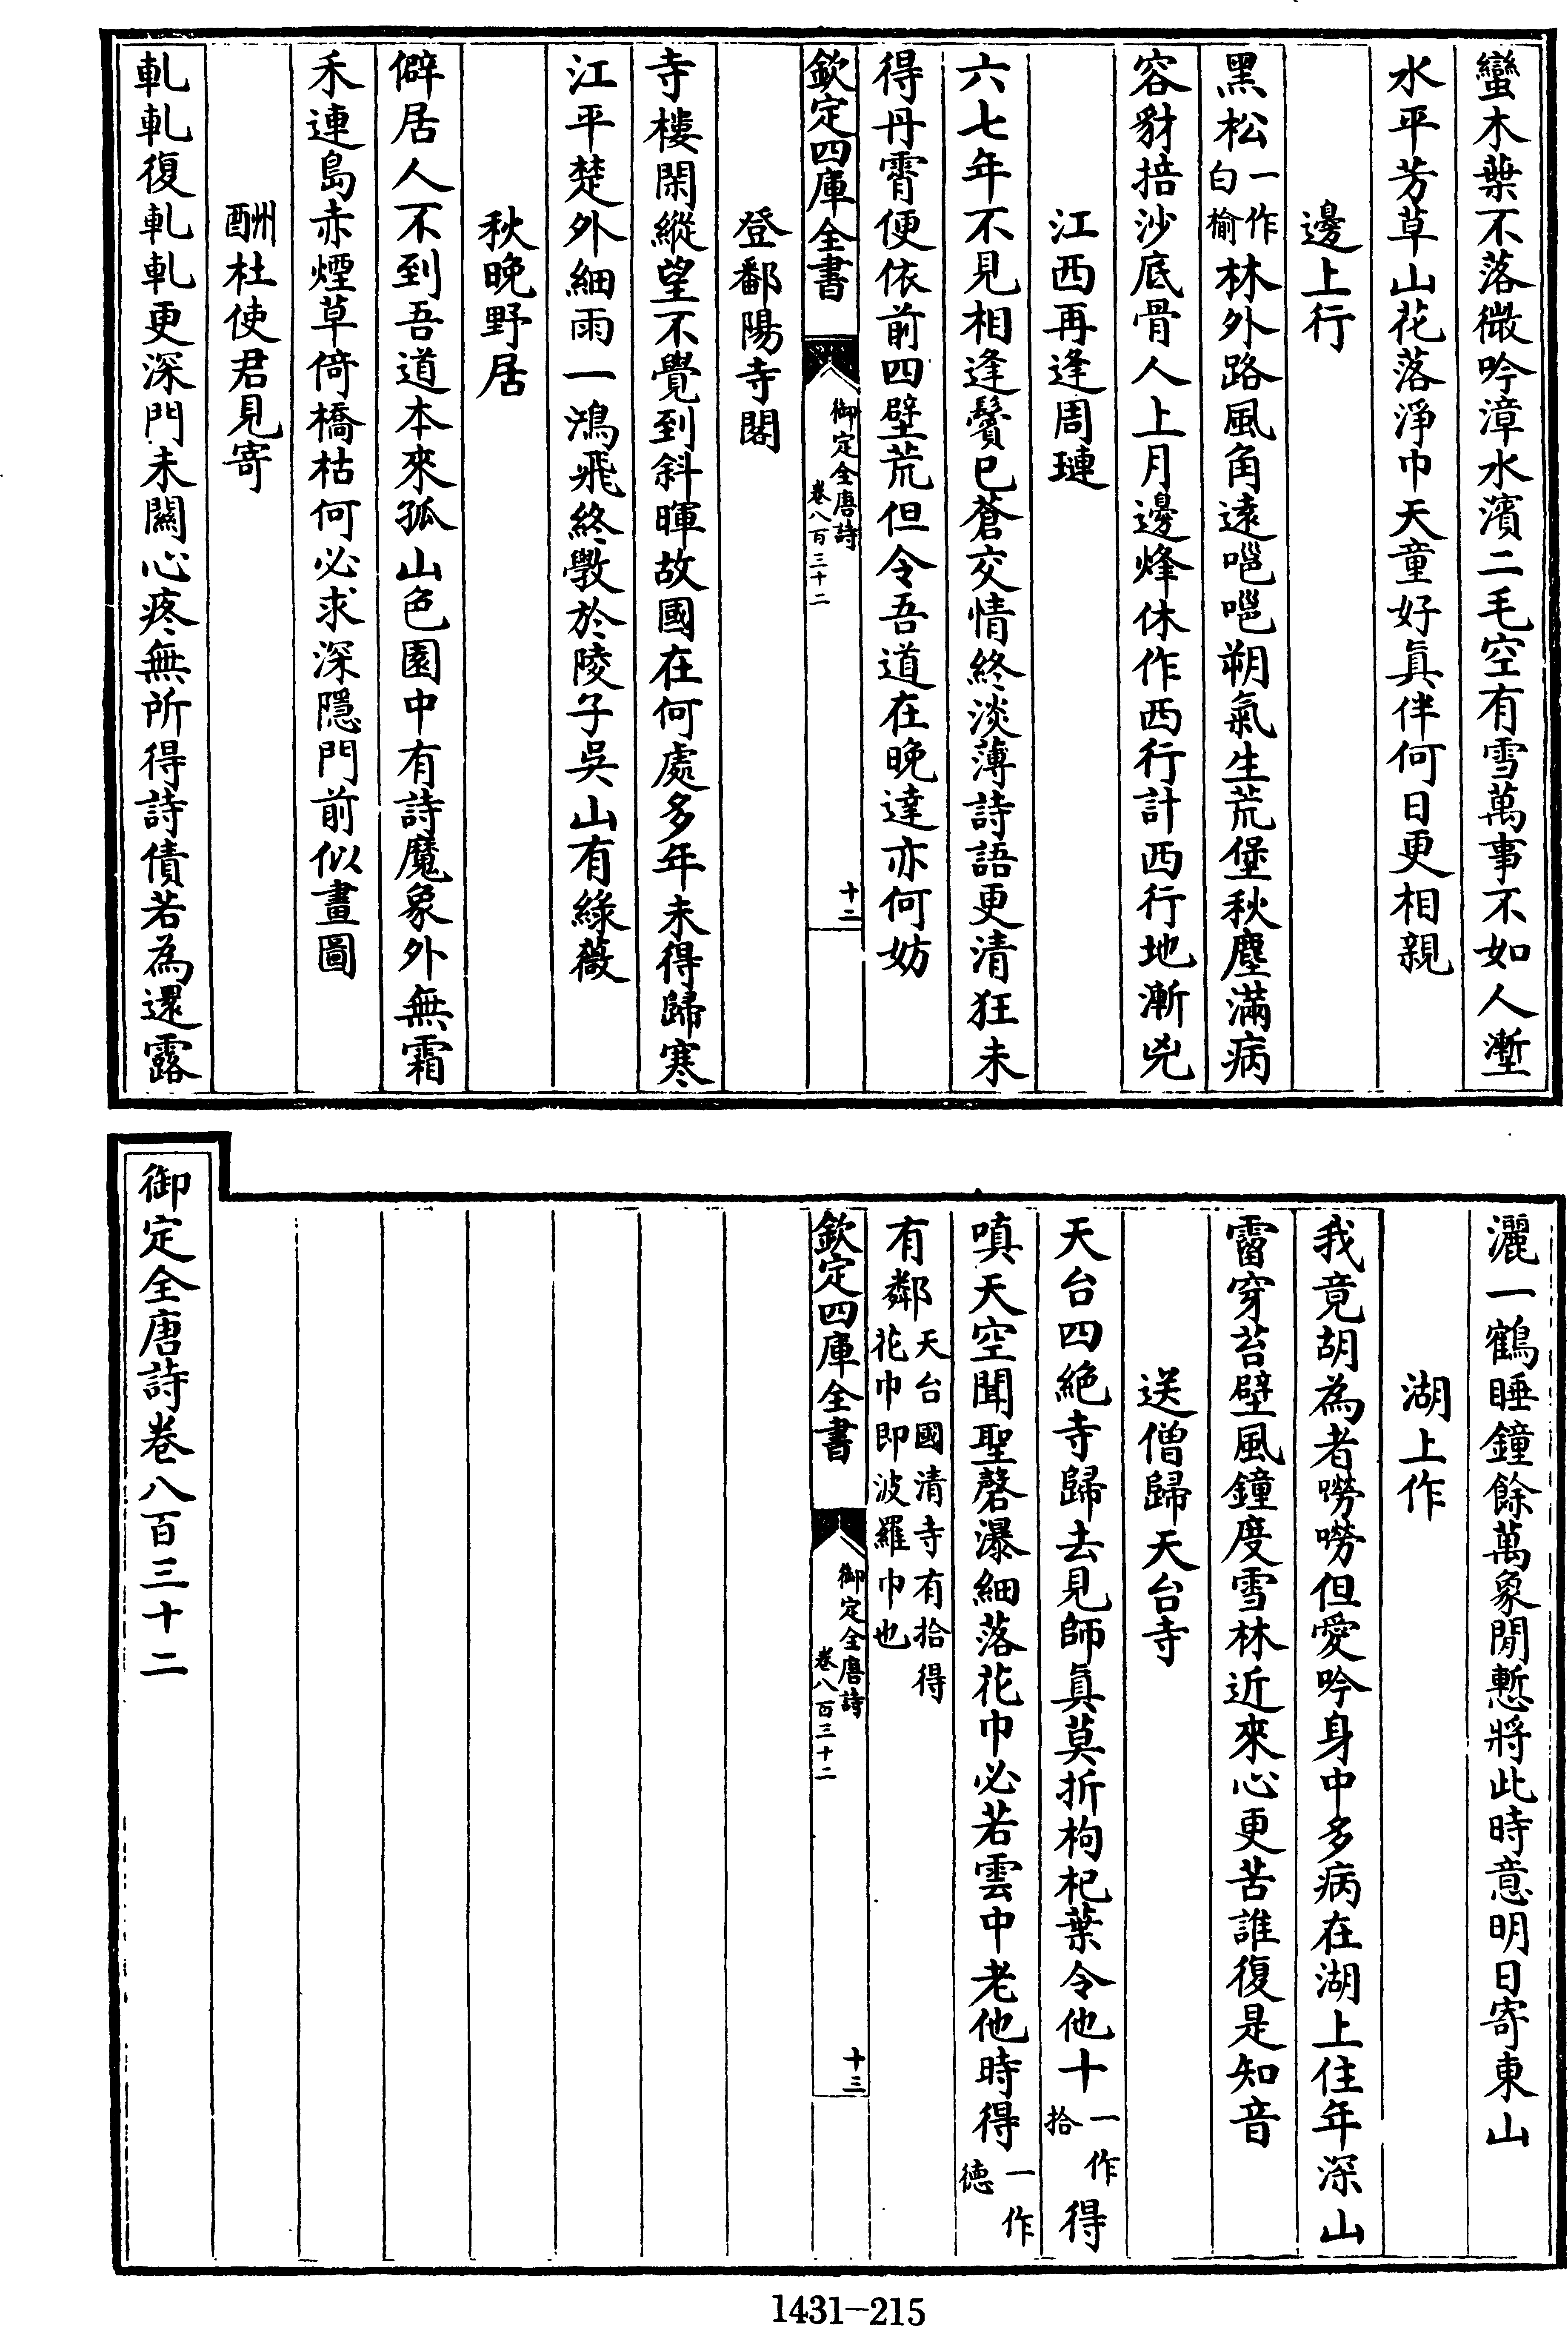 蠻木葉不落微吟漳水濱二毛空有雪萬事不如人漸
水平芳草山花落淨巾天童好真伴何日更相親
邊上行
黑松一作白榆林外路風角遠嗈嗈朔氣生荒堡秋塵滿病
容豺掊沙底骨人上月邊烽休作西行計西行地漸兇
江西再逢周璉
六七年不見相逢鬢已蒼交情終淡薄詩語更清狂未
得丹霄便依前四壁荒但令吾道在晚達亦何妨
欽定四庫全書 御定全唐詩 卷八百三十二 十二
登鄱陽寺閣
寺樓閑縱望不覺到斜暉故國在何處多年未得歸寒
江平楚外細雨一鴻飛終斆於陵子吳山有綠薇
秋晚野居
僻居人不到吾道本來孤山色園中有詩魔象外無霜
禾連島赤煙草倚橋枯何必求深隱門前似畫圖
酬杜使君見寄
軋軋復軋軋更深門未關心疼無所得詩債若為還露
灑一鶴睡鐘餘萬象閒慙將此時意明日寄東山
湖上作
我竟胡為者嘮嘮但愛吟身中多病在湖上住年深山
霤穿苔壁風鐘度雪林近來心更苦誰復是知音
送僧歸天台寺
天台四絕寺歸去見師真莫折枸杞葉令他十一作拾得
嗔天空聞聖磬瀑細落花巾必若雲中老他時得一作德
有鄰天台國清寺有拾得花巾即波羅巾也
欽定四庫全書 御定全唐詩 卷八百三十二 十三
御定全唐詩卷八百三十二
1431-215